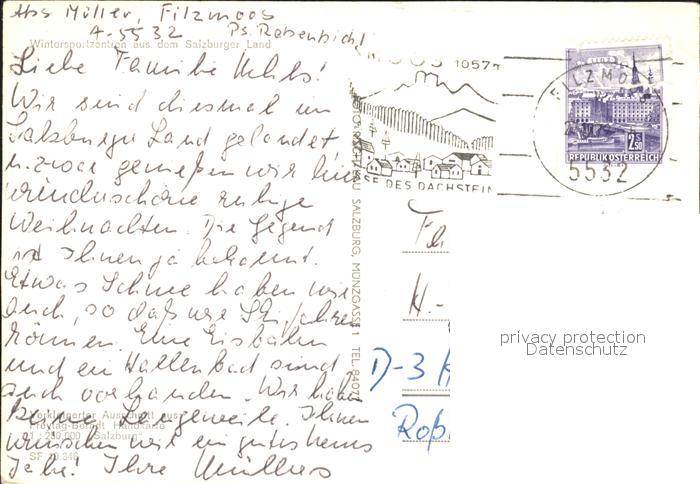 Abs Müller, Filzmoos
A-5532 Ps. Rabenbichl
Wintersportzentren aus dem Salzburger Land
Liebe Familie
Wir sind diesmal im
Salzburger Land gelandet
u. zwar genießen wir hier
wunderschöne ruhige
Weihnachten. Die Gegend
ist Ihnen ja bekannt.
Etwas Schnee haben wir
auch, so daß wir Ski fahren
können. Eine Eisbahn
und ein Hallenbad sind
auch vorhanden. Wir haben
keine Langeweile. Ihnen
wünschen wir ein gutes neues
Jahr! Ihre Müllers
Verkleinerter Ausschnitt aus
Freytag-Berndt Handkarte
1 : 250.000 "Salzburg"
SF 10.346
SALZBURG, MÜNZGASSE 1 TEL. 8407
1057 m
DES DACHSTEIN
FILZMOOS
5532
2.50
REPUBLIK ÖSTERREICH
H.-
D-3
Roß
privacy protection
Datenschutz